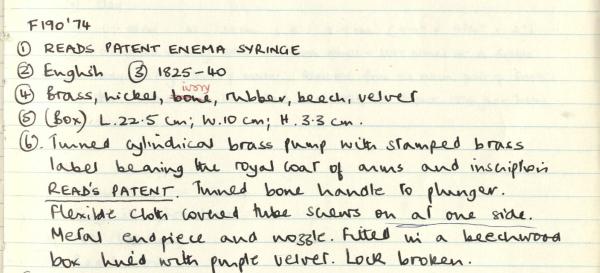 F190'74
① READS PATENT ENEMA SYRINGE
② English ③ 1825-40
ivory
④ Brass, nickel, bone, rubber, beech, velvet
⑤ (Box) L.22.5 cm; W.10 cm; H.3.3 cm.
⑥. Turned cylindrical brass pump with stamped brass
label bearing the royal coat of arms and inscription
READ'S PATENT. Turned bone handle to plunger.
Flexible cloth covered tube screws on at one side.
Metal endpiece and nozzle. Fitted in a beechwood
box lined with purple velvet. Lock broken.